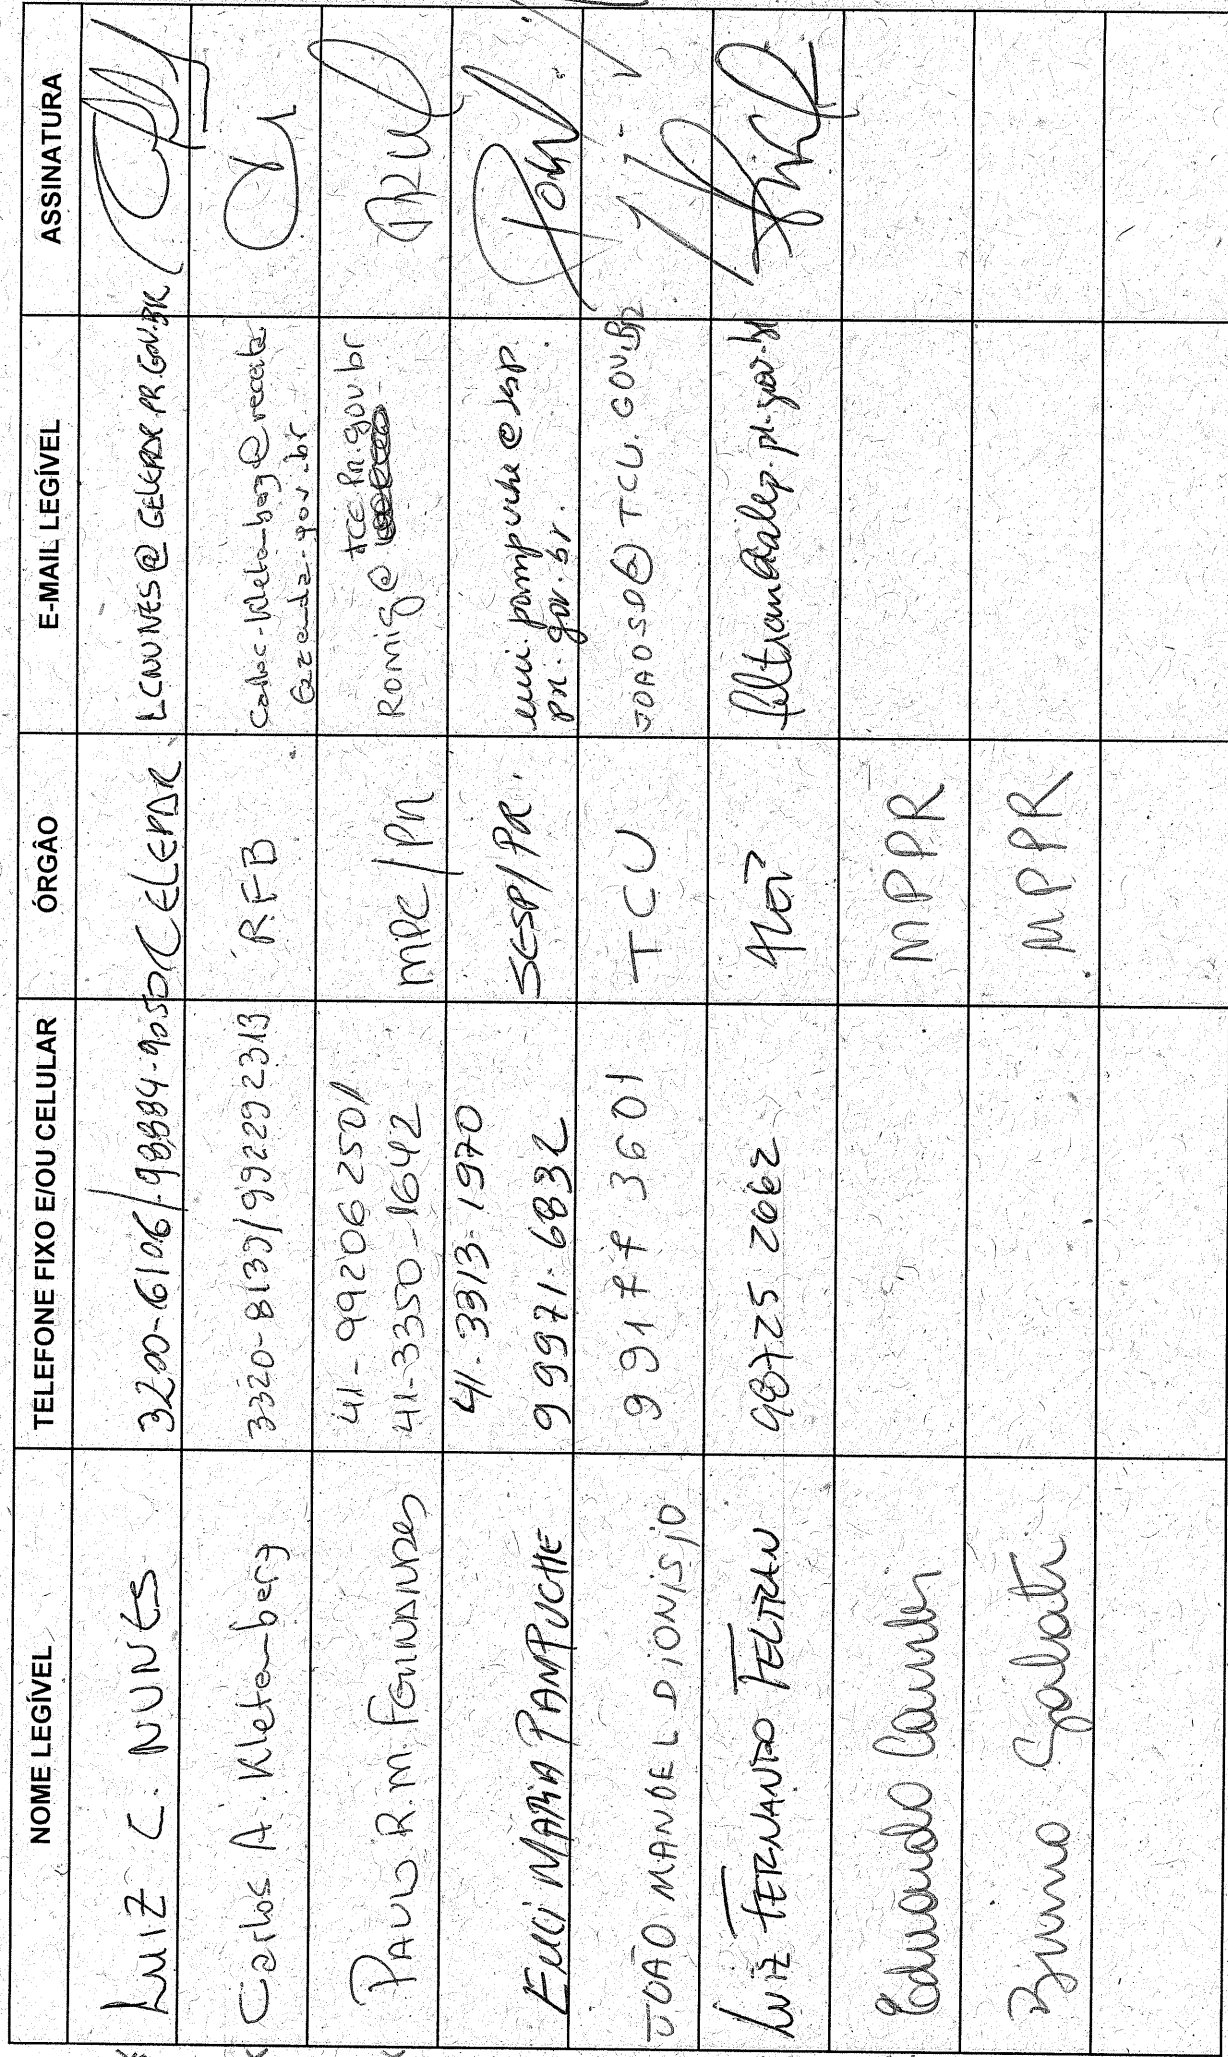 NOME LEGÍVEL TELEFONE FIXO E/OU CELULAR ÓRGÃO E-MAIL LEGÍVEL ASSINATURA
LUIZ C. NUNES 3200-6106/ 98884-9050 CELEPAR LCNUNES@CELEPAR.PR.GOV.BR
Carlos A. Kletemberg 3320-8139/999292313 RFB carlos.kletemberg@receita
fazenda.gov.br
PAULO R.M. FERNANDES 41-992062501 MPC/PR Romig@ tce.pr.gov br
41-3350-1642
EMCI MARIA PAMPUCHE 41.3313-1970 SESP/PR pampuche@sesp.
99971-6832 pr.gov.br.
JOÃO MANOEL DIONISIO 99177 3601 TCU JOAOSD@TCU.GOV.BR
LUIZ FERNANDO FELTRAN 98725 2662 feltran@alep.pr.gov.br
Eduardo MPPR
Bruno MPPR